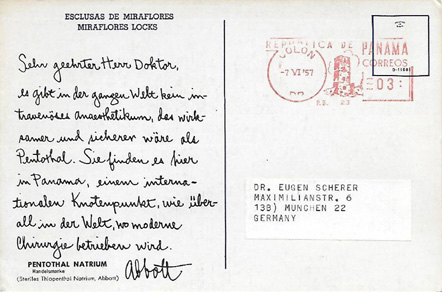 ESCLUSAS DE MIRAFLORES
MIRAFLORES LOCKS
Sehr geehrter Herr Doktor,
es gibt in der ganzen Welt kein in-
travenöses Anaesthetikum, das wirk-
samer und sicherer wäre als
Pentothal. Sie finden es hier
in Panama, einem interna-
tionalen Knotenpunkt, wie über-
all in der Welt, wo moderne
Chirurgie betrieben wird.
PENTOTHAL NATRIUM
Handelsmarke
(Steriles Thiopental Natrium, Abbott)
Abbott
REPUBLICA DE PANAMA
CORREOS
COLON
-7 VI '57
P.B. 23
03
DR. EUGEN SCHERER
MAXIMILIANSTR. 6
13B) MUNCHEN 22
GERMANY